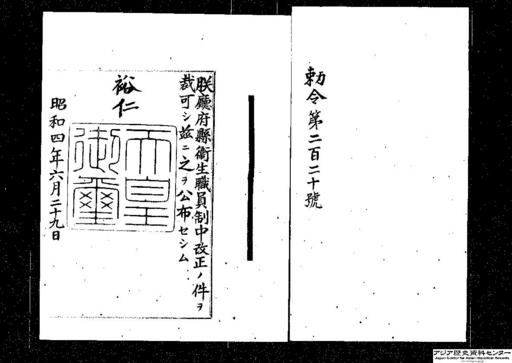 勅令第二百二十號
朕廳府縣衞生職員制中改正ノ件ヲ
裁可シ茲ニ之ヲ公布セシム
裕仁
天皇
御璽
昭和四年六月二十九日
アジア歴史資料センター
Japan Center for Asian Historical Records